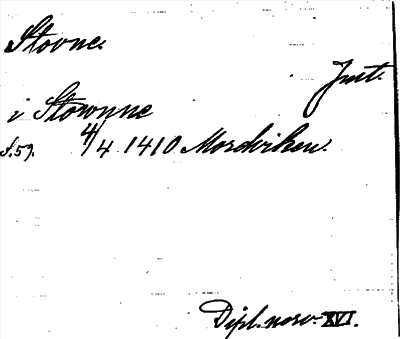 Stovne.
Jmt.
i Stownne
S. 59. 4/4 1410 Mordviken.
Dipl. norv. XVI.